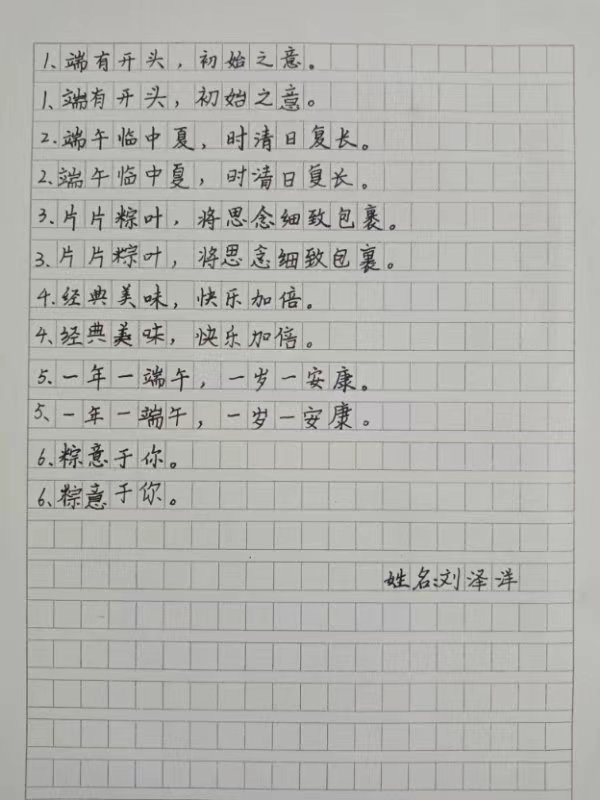 1、端有开头，初始之意。
1、端有开头，初始之意。
2、端午临中夏，时清日复长。
2、端午临中夏，时清日复长。
3、片片粽叶，将思念细致包裹。
3、片片粽叶，将思念细致包裹。
4、经典美味，快乐加倍。
4、经典美味，快乐加倍。
5、一年一端午，一岁一安康。
5、一年一端午，一岁一安康。
6、粽意于你。
6、粽意于你。
姓名：刘泽洋